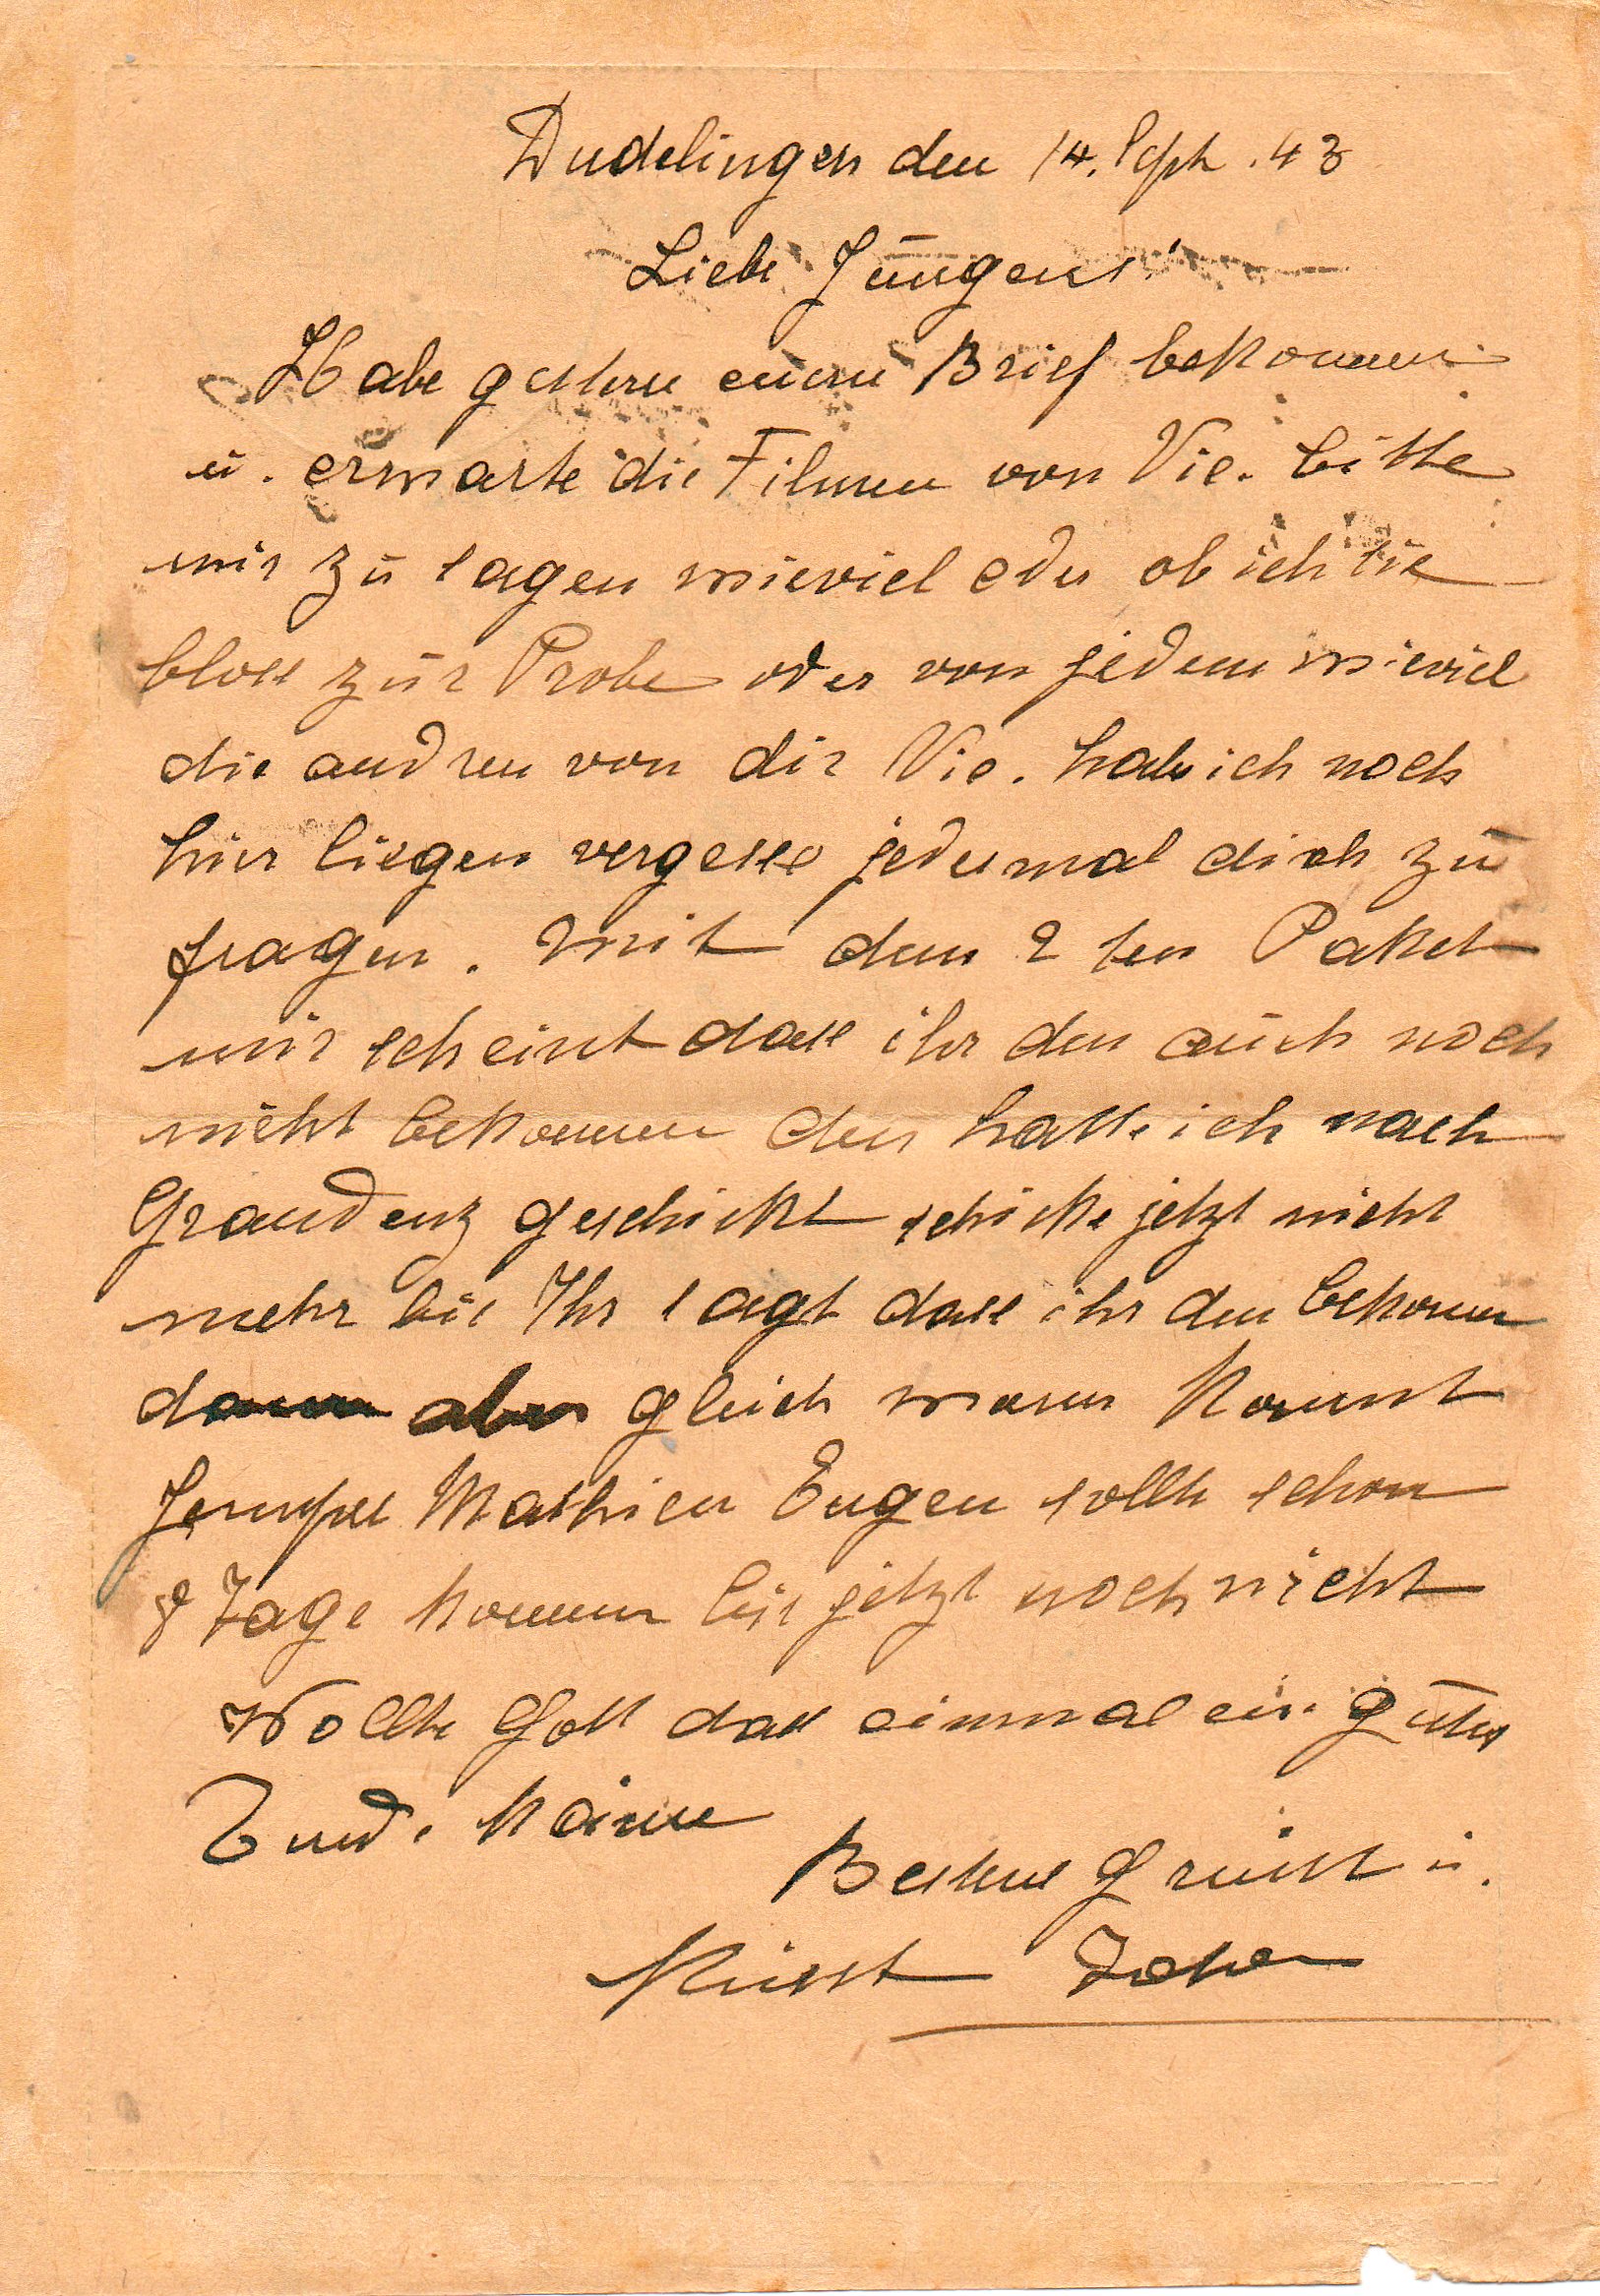 Dudelingen den 14. Sept. 43
Liebe Jungens!
Habe gestern euern Brief bekommen
u. erwarte die Filmen von Vic. bitte
mir zu sagen wieviel oder ob ich sie
bloss zur Probe oder von jedem wieviel
die andren von dir Vic. hab ich noch
hier liegen vergesse jedesmal dich zu
fragen. Mit dem 2ten Paket
mir scheint dass ihr den auch noch
nicht bekommen den hatte ich nach
Graudenz geschickt schicke jetzt nicht
mehr bis Ihr sagt dass ihr den bekommen
dann aber gleich wann kommt
Jempel Mathieu Eugen sollte schon
8 Tage kommen bis jetzt noch nicht
Wollte Gott dass einmal ein gutes
End. käme
Bestens grüsst u.
Küsst